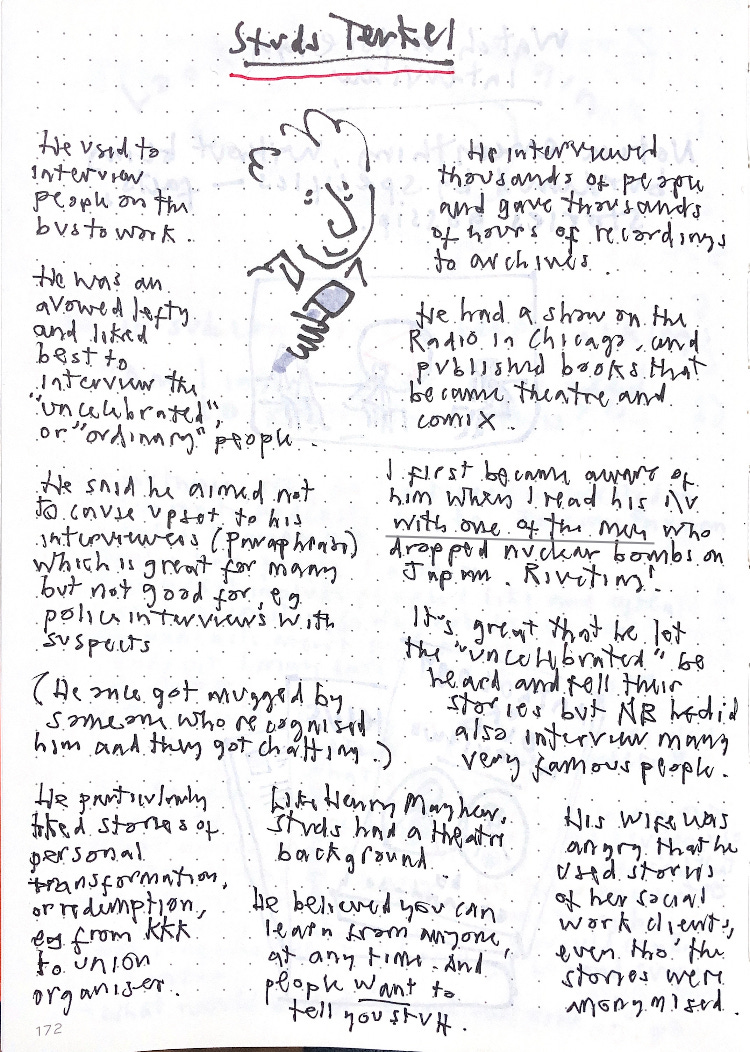 Studs Terkel
He used to
interview
people on the
bus to work.
He was an
avowed lefty
and liked
best to
interview the
"uncelebrated",
or "ordinary" people.
He said he aimed not
to cause upset to his
interviewees (paraphrase)
which is great for many
but not good for, eg
police interviews with
suspects
(He once got mugged by
someone who recognised
him and they got chatting.)
He particularly
liked stories of
personal
transformation,
or redemption,
eg from KKK
to union
organiser.
He interviewed
thousands of people
and gave thousands
of hours of recordings
to archives.
He had a show on the
Radio in Chicago, and
published books that
became theatre and
comix.
I first became aware of
him when I read his i/v
with one of the men who
dropped nuclear bombs on
Japan. Riveting!
It's great that he let
the "uncelebrated" be
heard and tell their
stories but NB he did
also interview many
very famous people.
Like Henry Mayhew,
Studs had a theatre
background.
He believed you can
learn from anyone,
at any time. And
people want to
tell you stuff.
His wife was
angry that he
used stories
of her social
work clients,
even tho' the
stories were
anonymised.
172